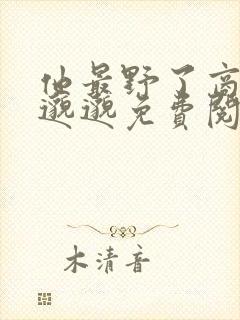 他最野了高
邈邈免費閱
木清音